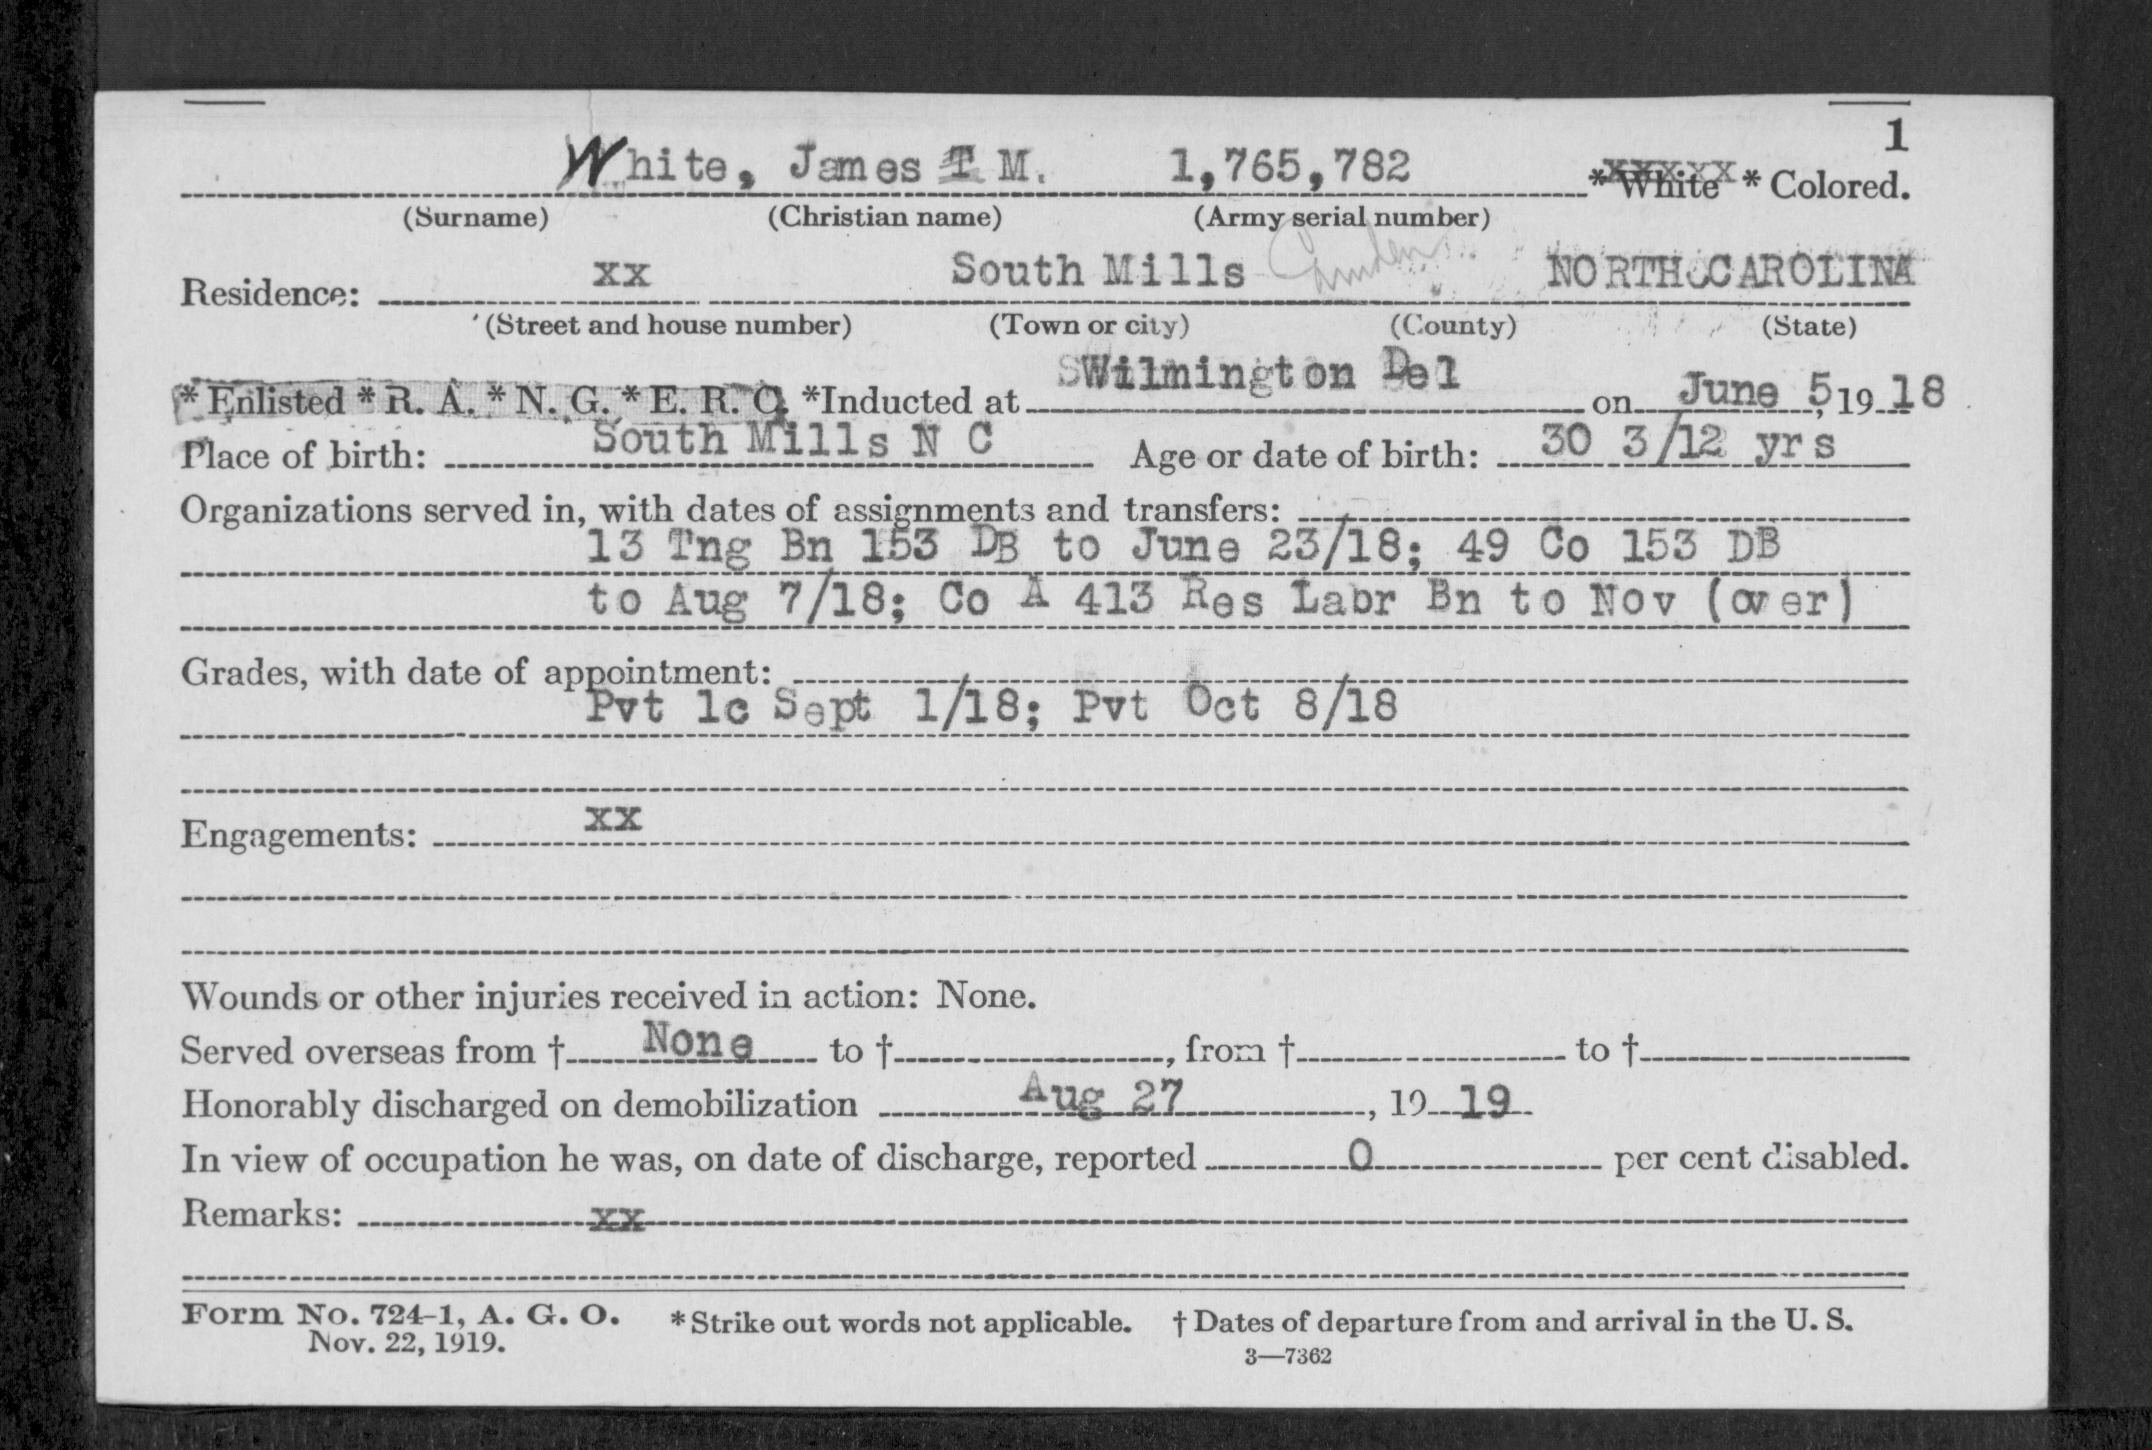 1
White, James T M. 1,765,782 *White *Colored.
(Surname) (Christian name) (Army serial number)
Residence: xx South Mills Camden NORTH CAROLINA
(Street and house number) (Town or city) (County) (State)
*Enlisted *R. A. *N. G. *E. R. C. *Inducted at Wilmington Del on June 5, 1918
Place of birth: South Mills N C Age or date of birth: 30 3/12 yrs
Organizations served in, with dates of assignments and transfers:
13 Tng Bn 153 DB to June 23/18; 49 Co 153 DB
to Aug 7/18; Co A 413 Res Labr Bn to Nov (over)
Grades, with date of appointment:
Pvt 1c Sept 1/18; Pvt Oct 8/18
Engagements: xx
Wounds or other injuries received in action: None.
Served overseas from † None to †, from † to †
Honorably discharged on demobilization Aug 27, 1919
In view of occupation he was, on date of discharge, reported 0 per cent disabled.
Remarks: xx
Form No. 724-1, A. G. O. *Strike out words not applicable. †Dates of departure from and arrival in the U. S.
Nov. 22, 1919. 3—7362